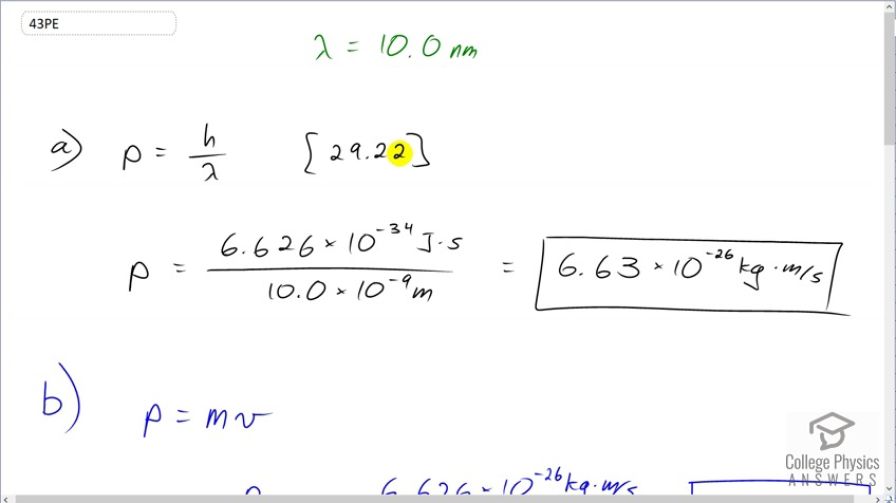 43PE
λ = 10.0 nm
a) p = h/λ [29.22]
p = 6.626 × 10⁻³⁴ J·s / 10.0 × 10⁻⁹ m = 6.63 × 10⁻²⁶ kg·m/s
b) p = mv
6.626 × 10⁻²⁶ kg·m/s
College Physics
ANSWERS